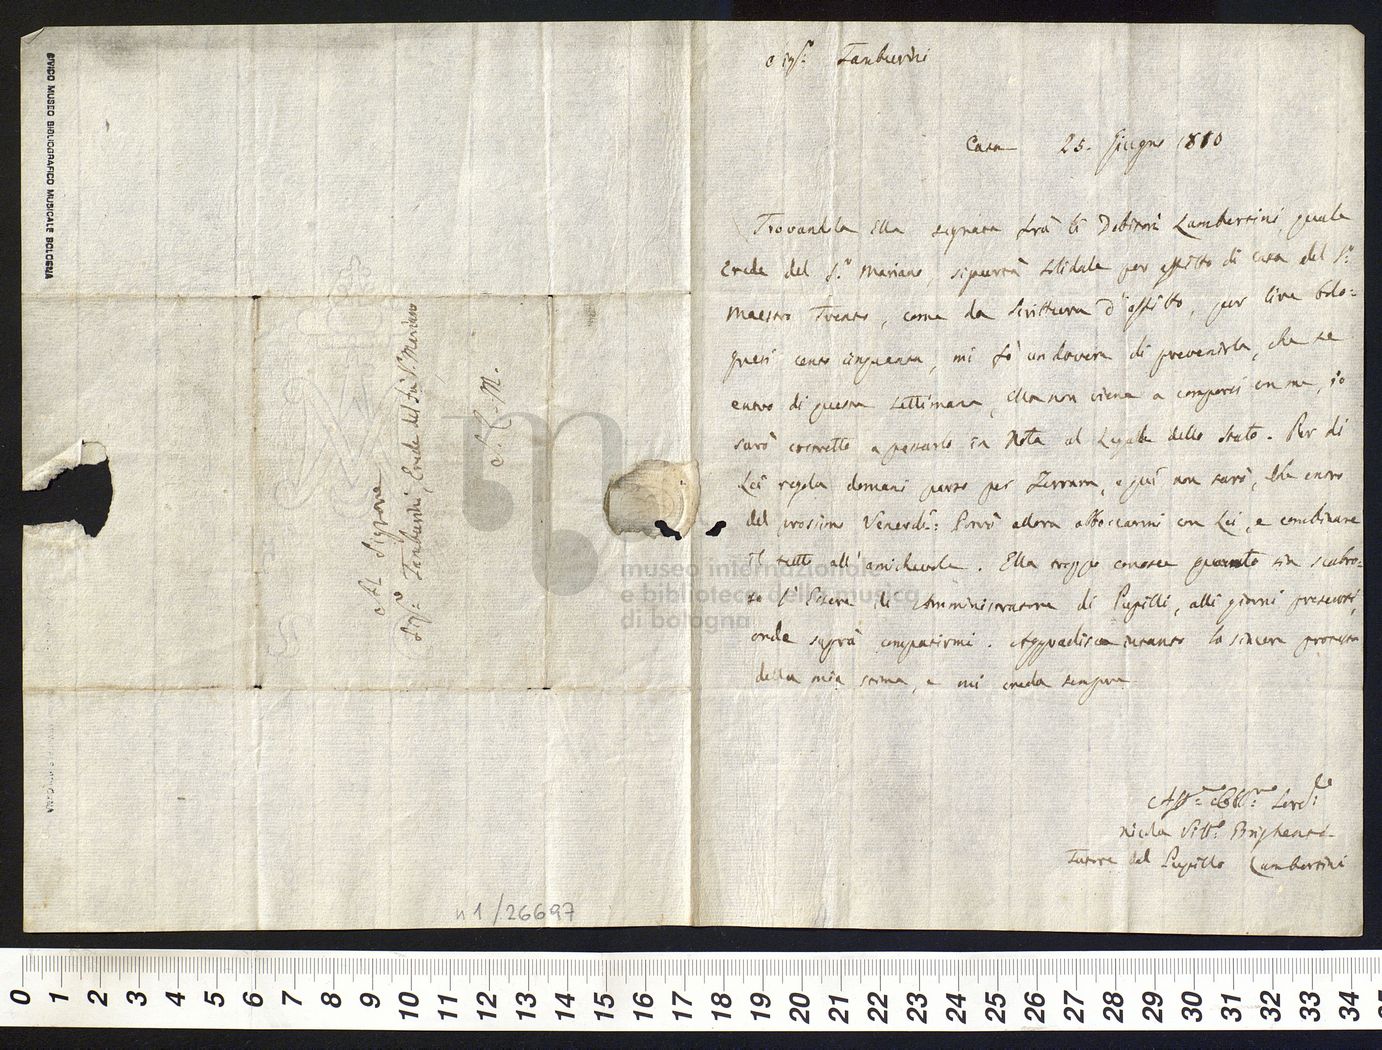 CIVICO MUSEO BIBLIOGRAFICO MUSICALE BOLOGNA
Al Signore
Sig.re Tamburini, Erede del fù S.r Mariano
S. P. M.
n 1/26697
museo internazionale
e biblioteca della musica
di bologna
Sig.r Tamburini
Casa 25. Giugno 1810
Trovandola Ella segnata frà li Debitori Lambertini, quale
Erede del S.r Mariano, sicurtà solidale per affitto di casa del S.r
Maestro Trento, come da Scrittura d'affitto, per lire bolo=
gnesi cento cinquanta, mi fò un dovere di prevenirla, che se
entro di questa settimana, Ella non viene a comporsi con me, io
sarò costretto a passarlo in Nota al Legale dello Stato. Per di
Lei regola domani parto per Ferrara, e quì non sarò, che entro
del prossimo Venerdì: Potrò allora abboccarmi con Lei, e combinare
il tutto all'amichevole. Ella troppo conosce quanto sia scabro=
so l'Essere di Amministratore di Pupilli, alli giorni presenti,
onde saprà compatirmi. Aggradisca intanto la sincera protesta
della mia stima, e mi creda sempre
Aff.mo Obb.mo Serv.re
Nicola Vitt.o Brighenti
Tutore del Pupillo Lambertini
0 1 2 3 4 5 6 7 8 9 10 11 12 13 14 15 16 17 18 19 20 21 22 23 24 25 26 27 28 29 30 31 32 33 34